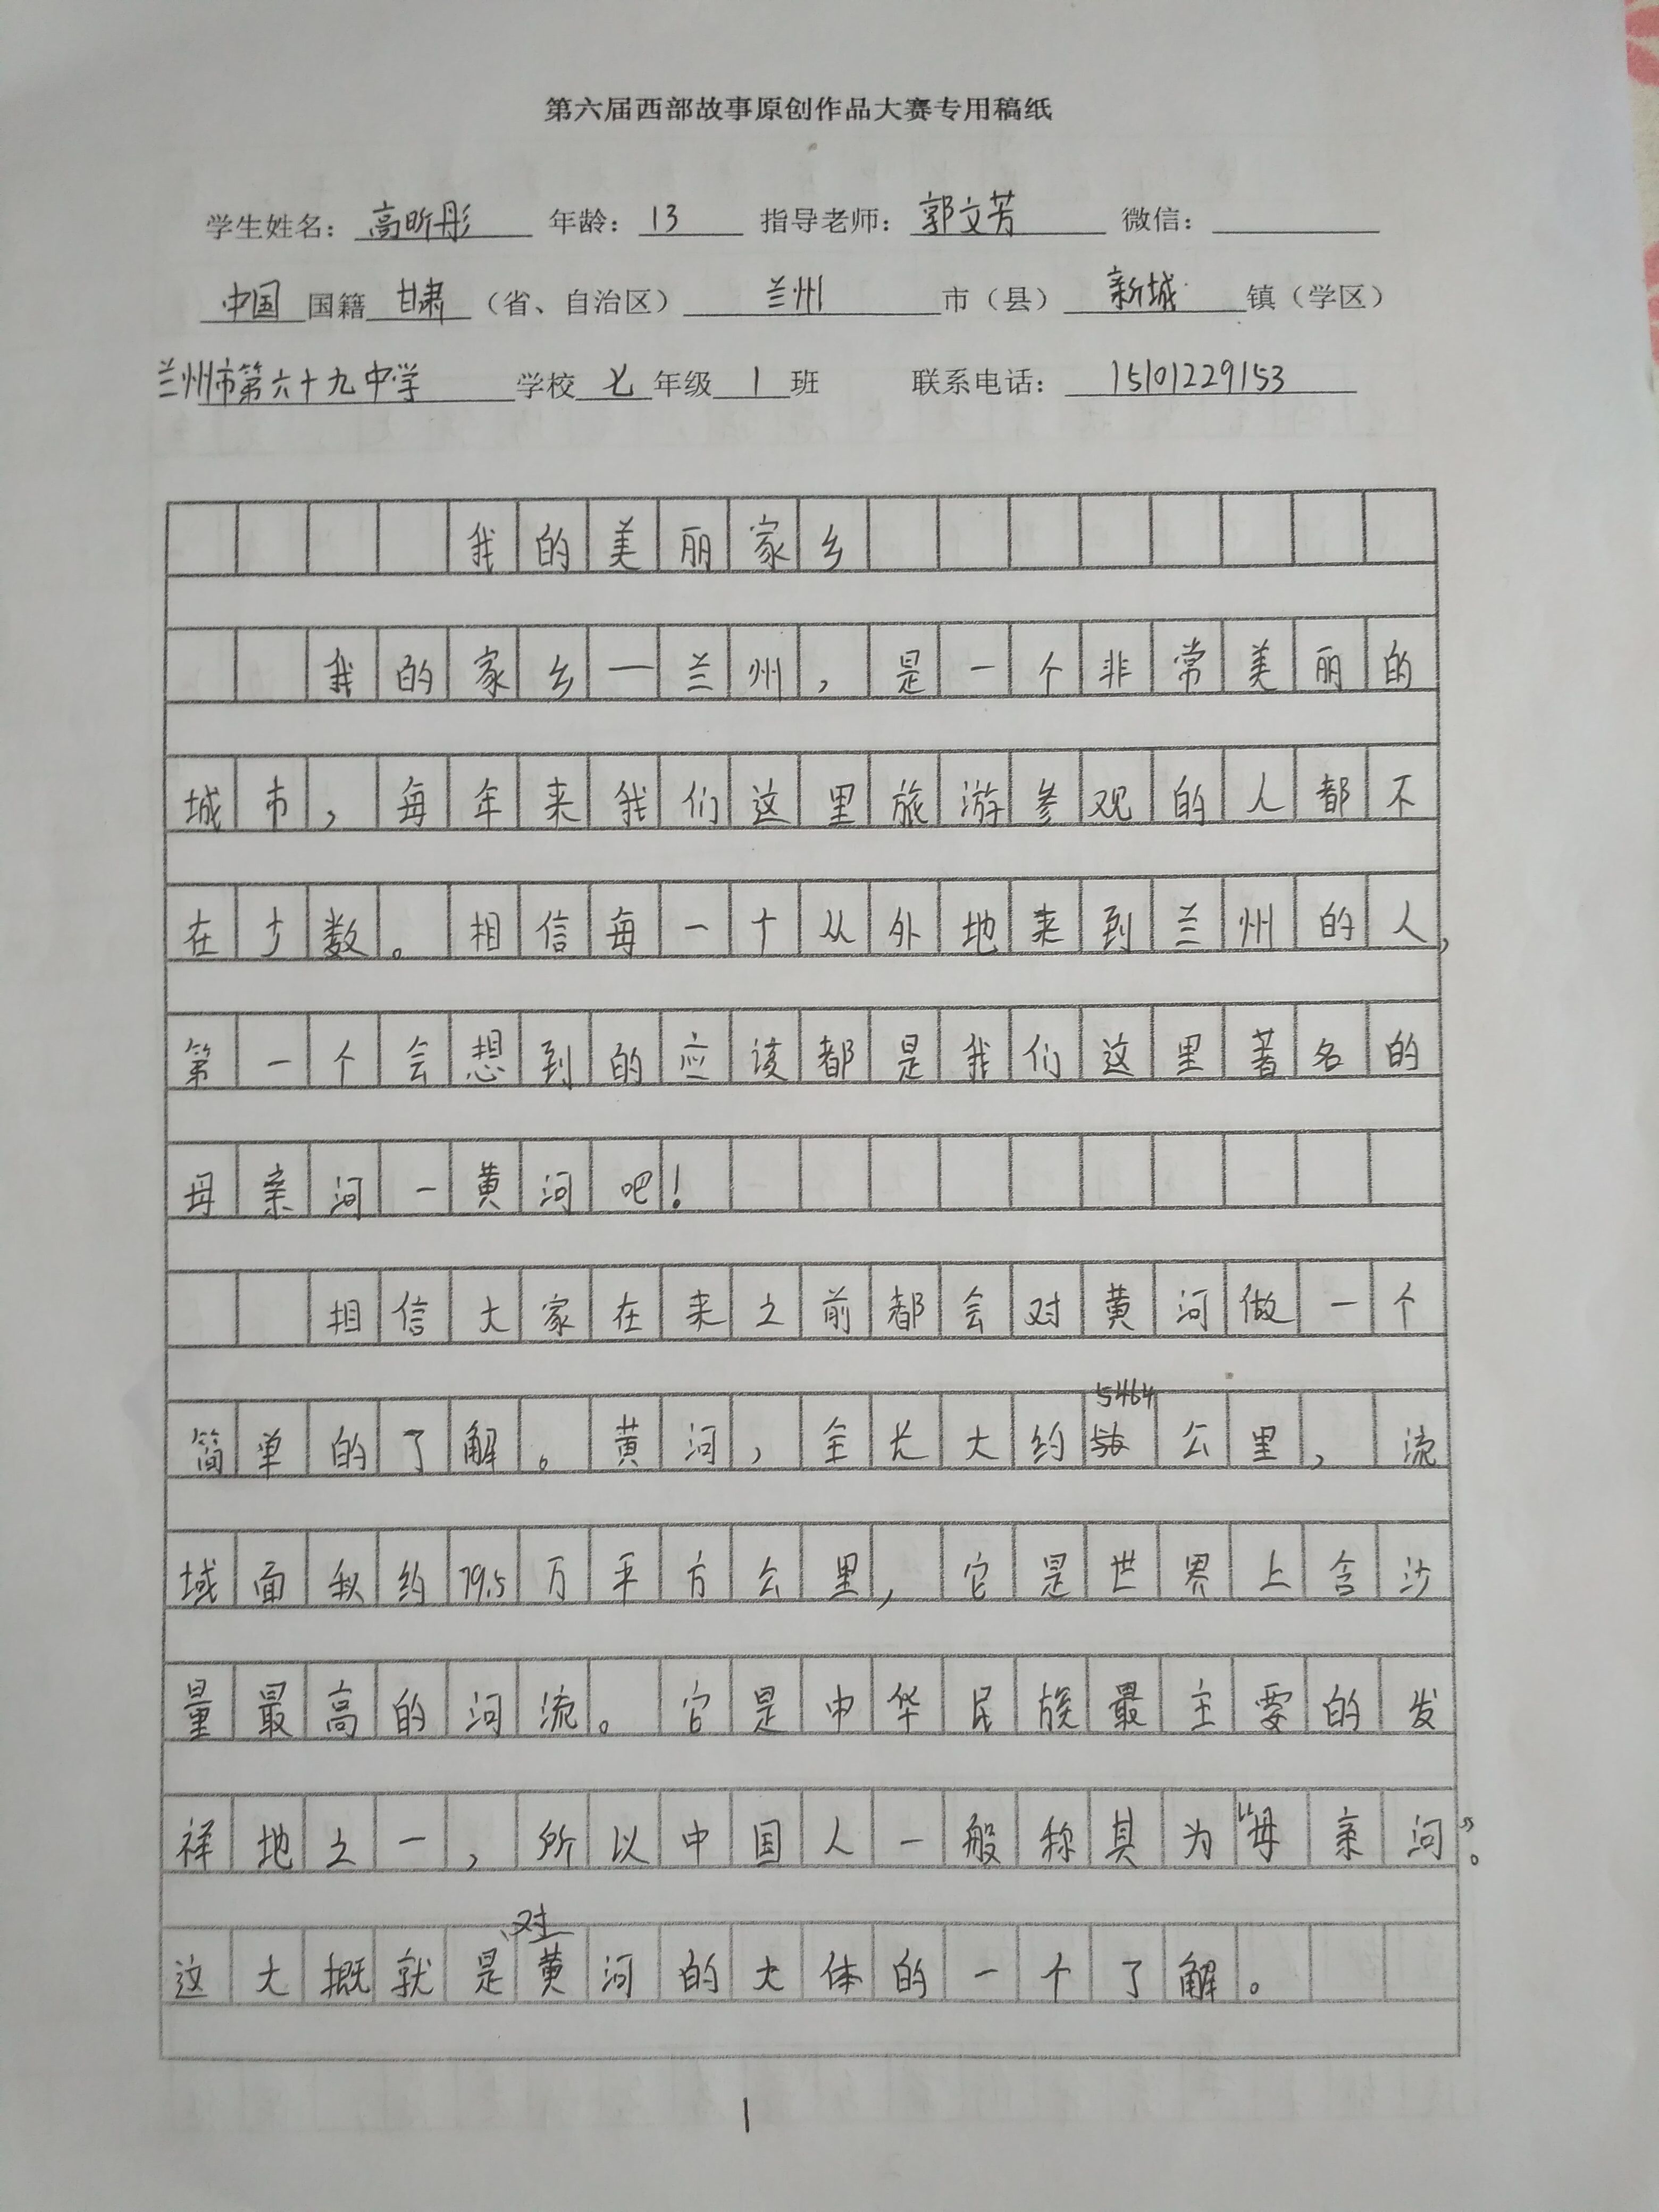 第六届西部故事原创作品大赛专用稿纸
学生姓名：高昕彤 年龄：13 指导老师：郭文芳 微信：
中国国籍甘肃（省、自治区）兰州市（县）新城镇（学区）
兰州市第六十九中学学校七年级1班 联系电话：15101229153
我的美丽家乡
我的家乡一兰州，是一个非常美丽的
城市，每年来我们这里旅游参观的人都不
在少数。相信每一个从外地来到兰州的人，
第一个会想到的应该都是我们这里著名的
母亲河一黄河吧！
相信大家在来之前都会对黄河做一个
简单的了解。黄河，全长大约5464公里，流
域面积约79.5万平方公里，它是世界上含沙
量最高的河流。它是中华民族最主要的发
祥地之一，所以中国人一般称其为“母亲河”。
这大概就是对黄河的大体的一个了解。
1